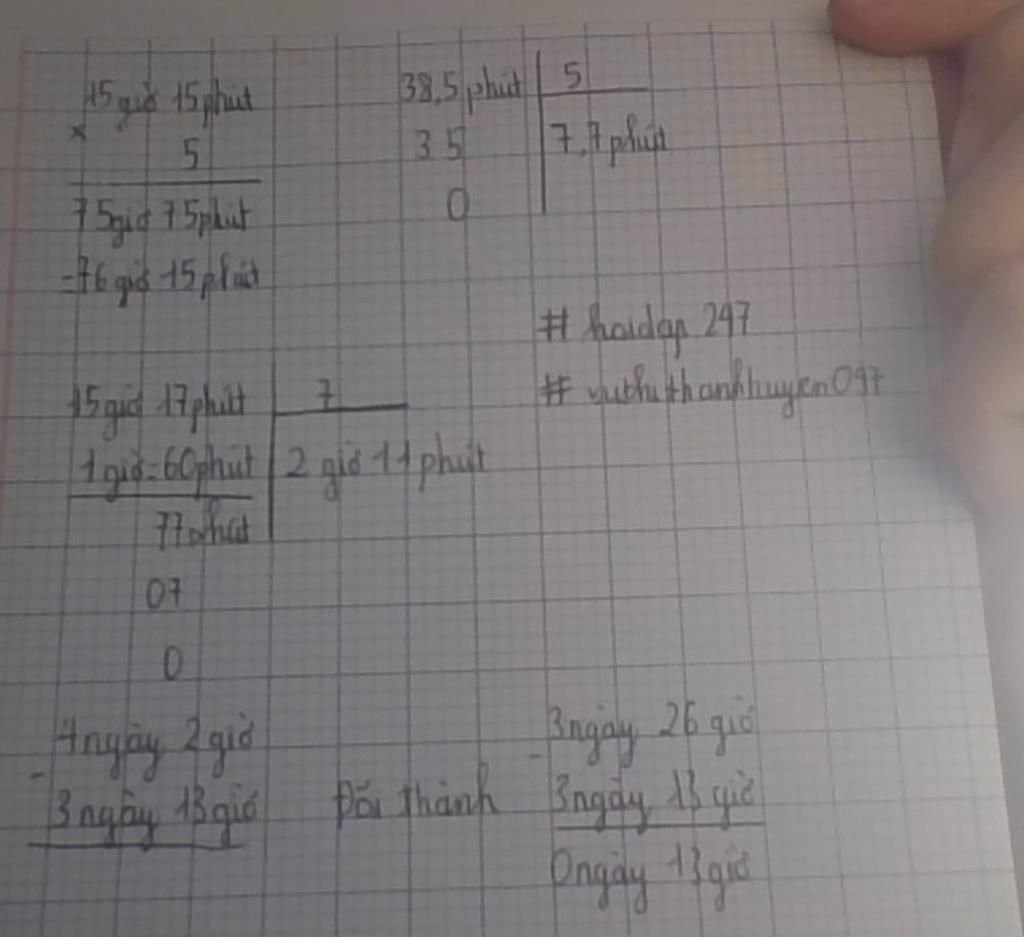 15 giờ 15 phút
×
5
75 giờ 75 phút
= 76 giờ 15 phút
38,5 phút 5
35 7,7 phút
0
# hoidap 247
# vuthithanhhuyen097
15 giờ 17 phút 7
1 giờ = 60 phút 2 giờ 11 phút
77 phút
07
0
4 ngày 2 giờ
-
3 ngày 13 giờ
Đổi thành
3 ngày 26 giờ
-
3 ngày 13 giờ
0 ngày 13 giờ